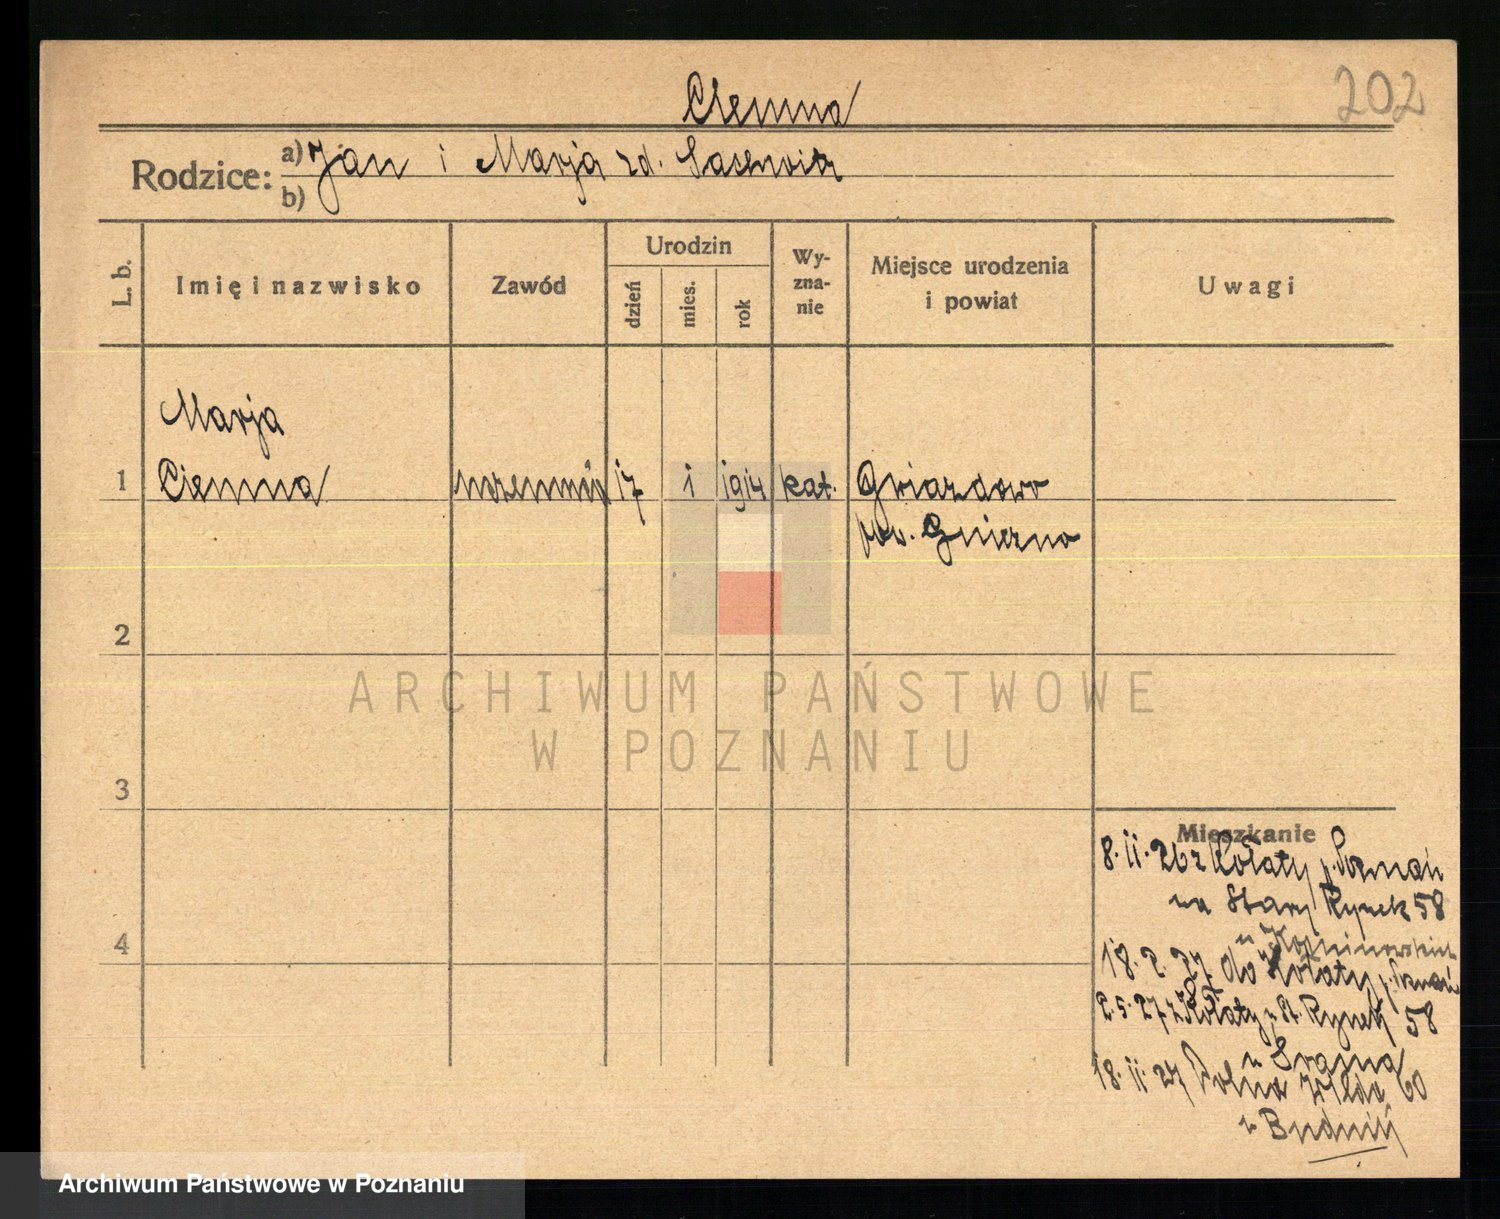 202
Ciemna
Rodzice: a) Jan i Marja zd.
b)
L. b.
Imię i nazwisko
Zawód
Urodzin
dzień
mies.
rok
Wy-
zna-
nie
Miejsce urodzenia
i powiat
Uwagi
Marja
1 Ciemna 17 1 1914 kat. Gwiazdowo
pow. Gniezno
2
3
4
Mieszkanie
8.11.26 z Kołaty p. Poznań
na Stary Rynek 58
u
18.2.27 do Kołaty p. Poznań
2.5.27 z Kołaty St. Rynek 58
u
18.11.27 Dolna Wilda 60
u
ARCHIWUM PAŃSTWOWE
W POZNANIU
Archiwum Państwowe w Poznaniu